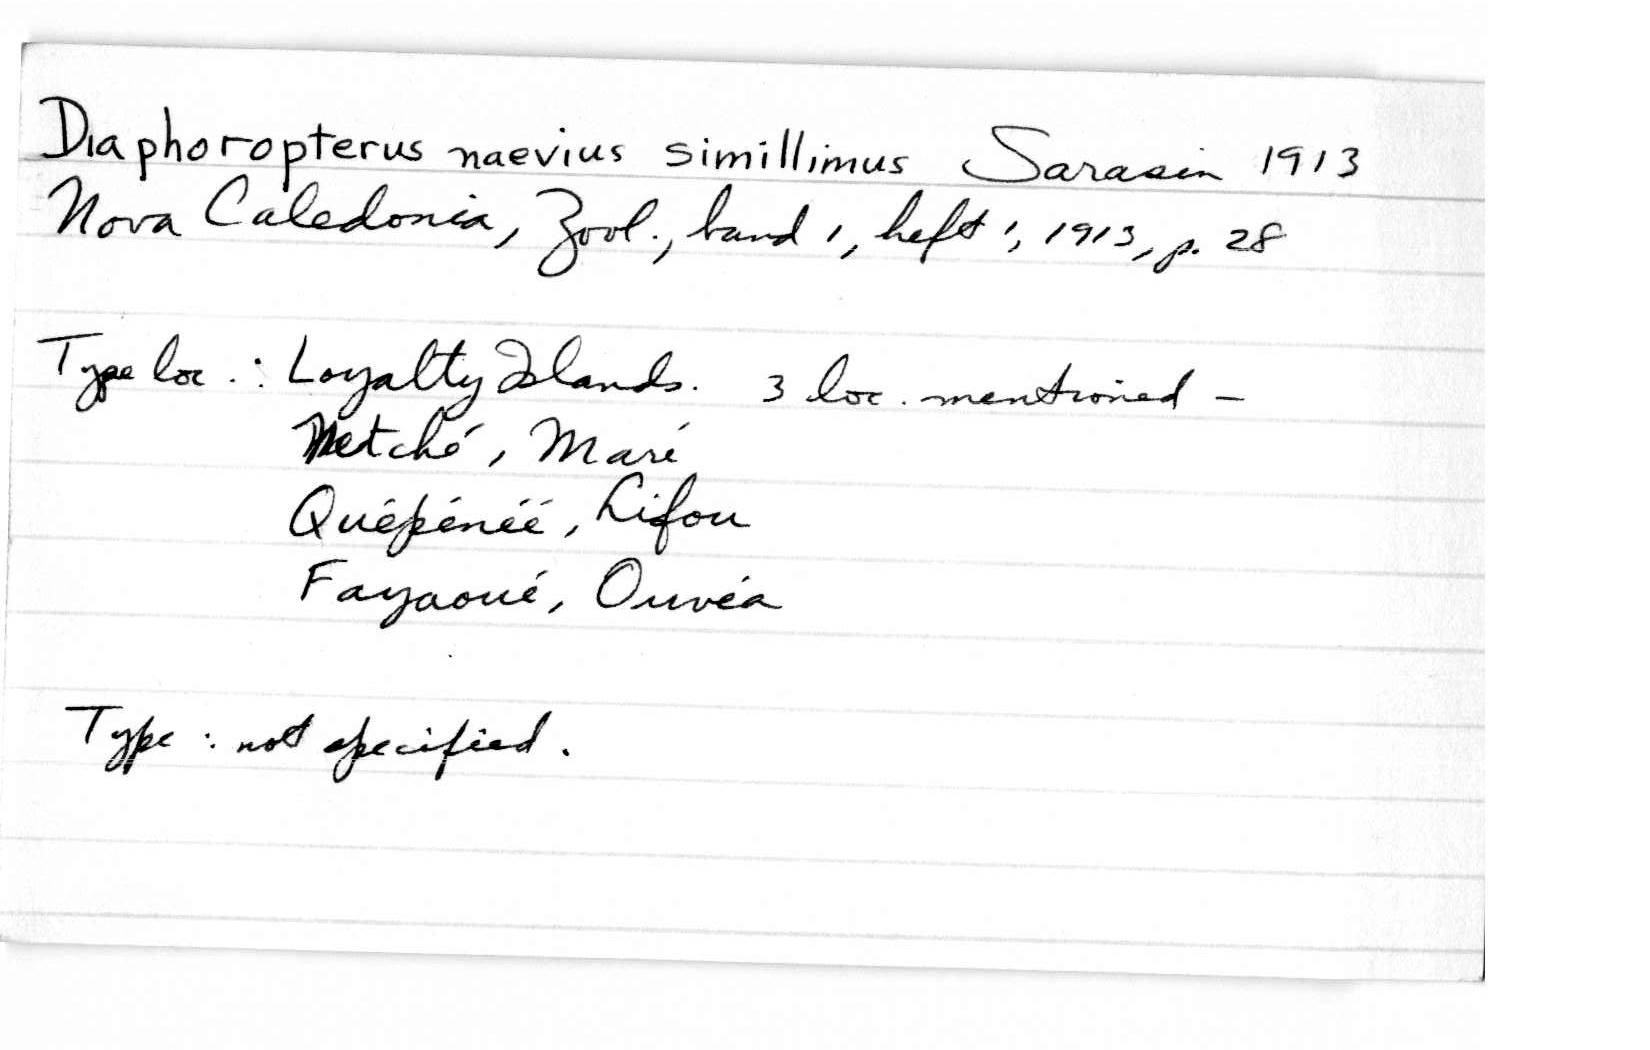 Diaphoropterus naevius simillimus Sarasin 1913
Nova Caledonia, Zool., band 1, heft 1, 1913, p. 28
Type loc.: Loyalty Islands. 3 loc. mentioned –
Netché, Maré
Quépénéé, Lifou
Fayaoué, Ouvéa
Type: not specified.